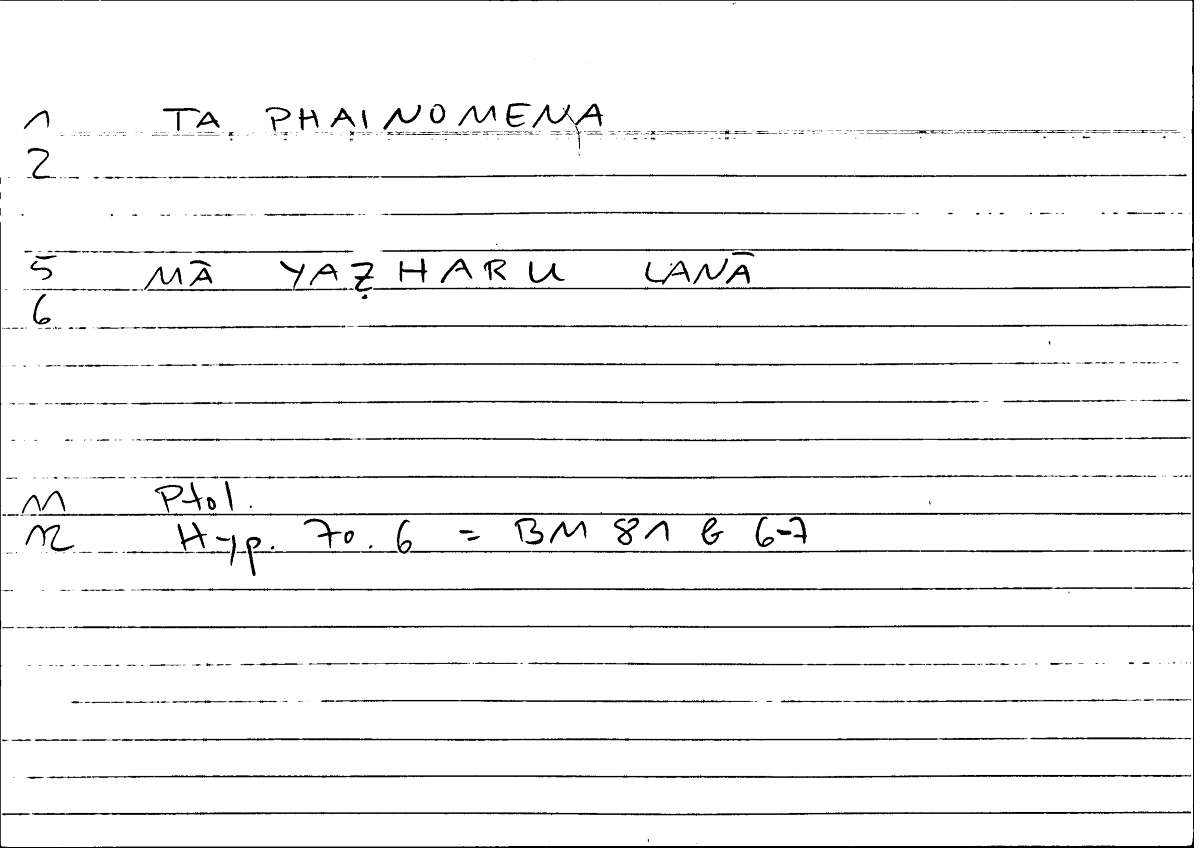 1 TA PHAINOMENA
2
5 MĀ YAẒHARU LANĀ
6
11 Ptol.
12 Hyp. 70. 6 = BM 81 b 6-7